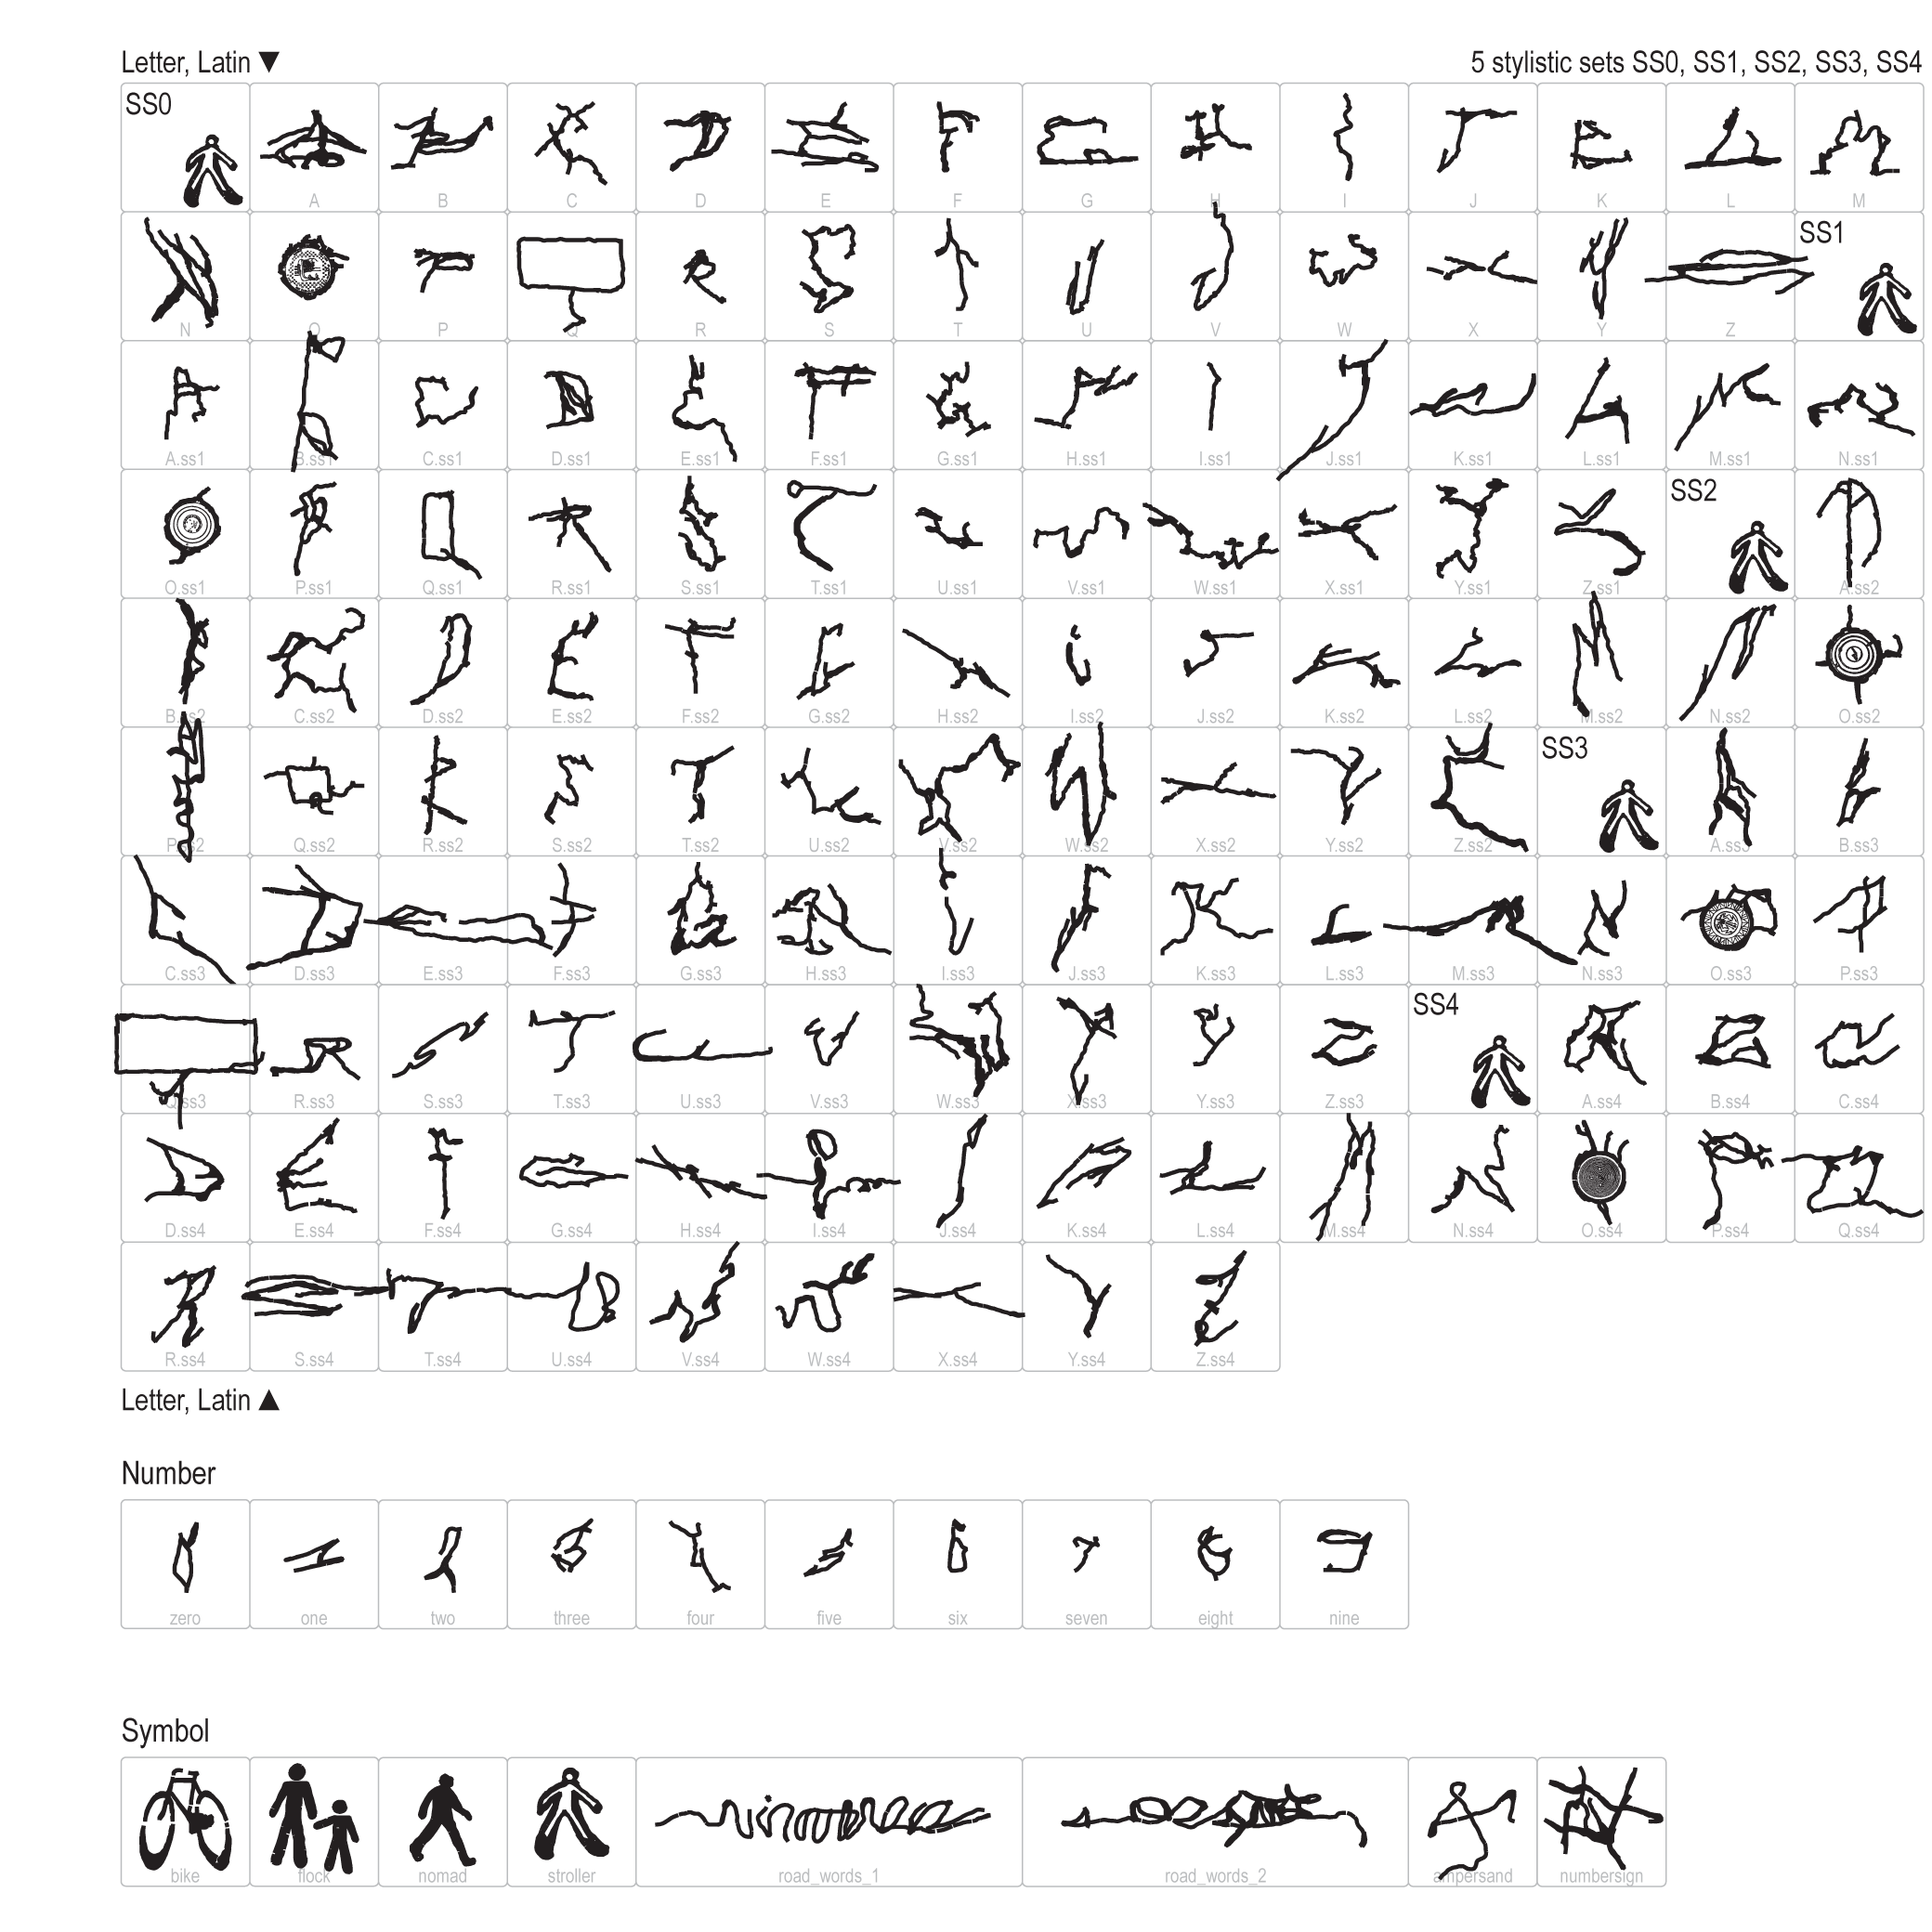 Letter, Latin ▼ 5 stylistic sets SS0, SS1, SS2, SS3, SS4
SS0 A B C D E F G H I J K L M
N O P Q R S T U V W X Y Z SS1
A.ss1 B.ss1 C.ss1 D.ss1 E.ss1 F.ss1 G.ss1 H.ss1 I.ss1 J.ss1 K.ss1 L.ss1 M.ss1 N.ss1
O.ss1 P.ss1 Q.ss1 R.ss1 S.ss1 T.ss1 U.ss1 V.ss1 W.ss1 X.ss1 Y.ss1 Z.ss1 SS2 A.ss2
B.ss2 C.ss2 D.ss2 E.ss2 F.ss2 G.ss2 H.ss2 I.ss2 J.ss2 K.ss2 L.ss2 M.ss2 N.ss2 O.ss2
P.ss2 Q.ss2 R.ss2 S.ss2 T.ss2 U.ss2 V.ss2 W.ss2 X.ss2 Y.ss2 Z.ss2 SS3 A.ss3 B.ss3
C.ss3 D.ss3 E.ss3 F.ss3 G.ss3 H.ss3 I.ss3 J.ss3 K.ss3 L.ss3 M.ss3 N.ss3 O.ss3 P.ss3
Q.ss3 R.ss3 S.ss3 T.ss3 U.ss3 V.ss3 W.ss3 X.ss3 Y.ss3 Z.ss3 SS4 A.ss4 B.ss4 C.ss4
D.ss4 E.ss4 F.ss4 G.ss4 H.ss4 I.ss4 J.ss4 K.ss4 L.ss4 M.ss4 N.ss4 O.ss4 P.ss4 Q.ss4
R.ss4 S.ss4 T.ss4 U.ss4 V.ss4 W.ss4 X.ss4 Y.ss4 Z.ss4
Letter, Latin ▲
Number
zero one two three four five six seven eight nine
Symbol
bike flock nomad stroller road_words_1 road_words_2 ampersand numbersign